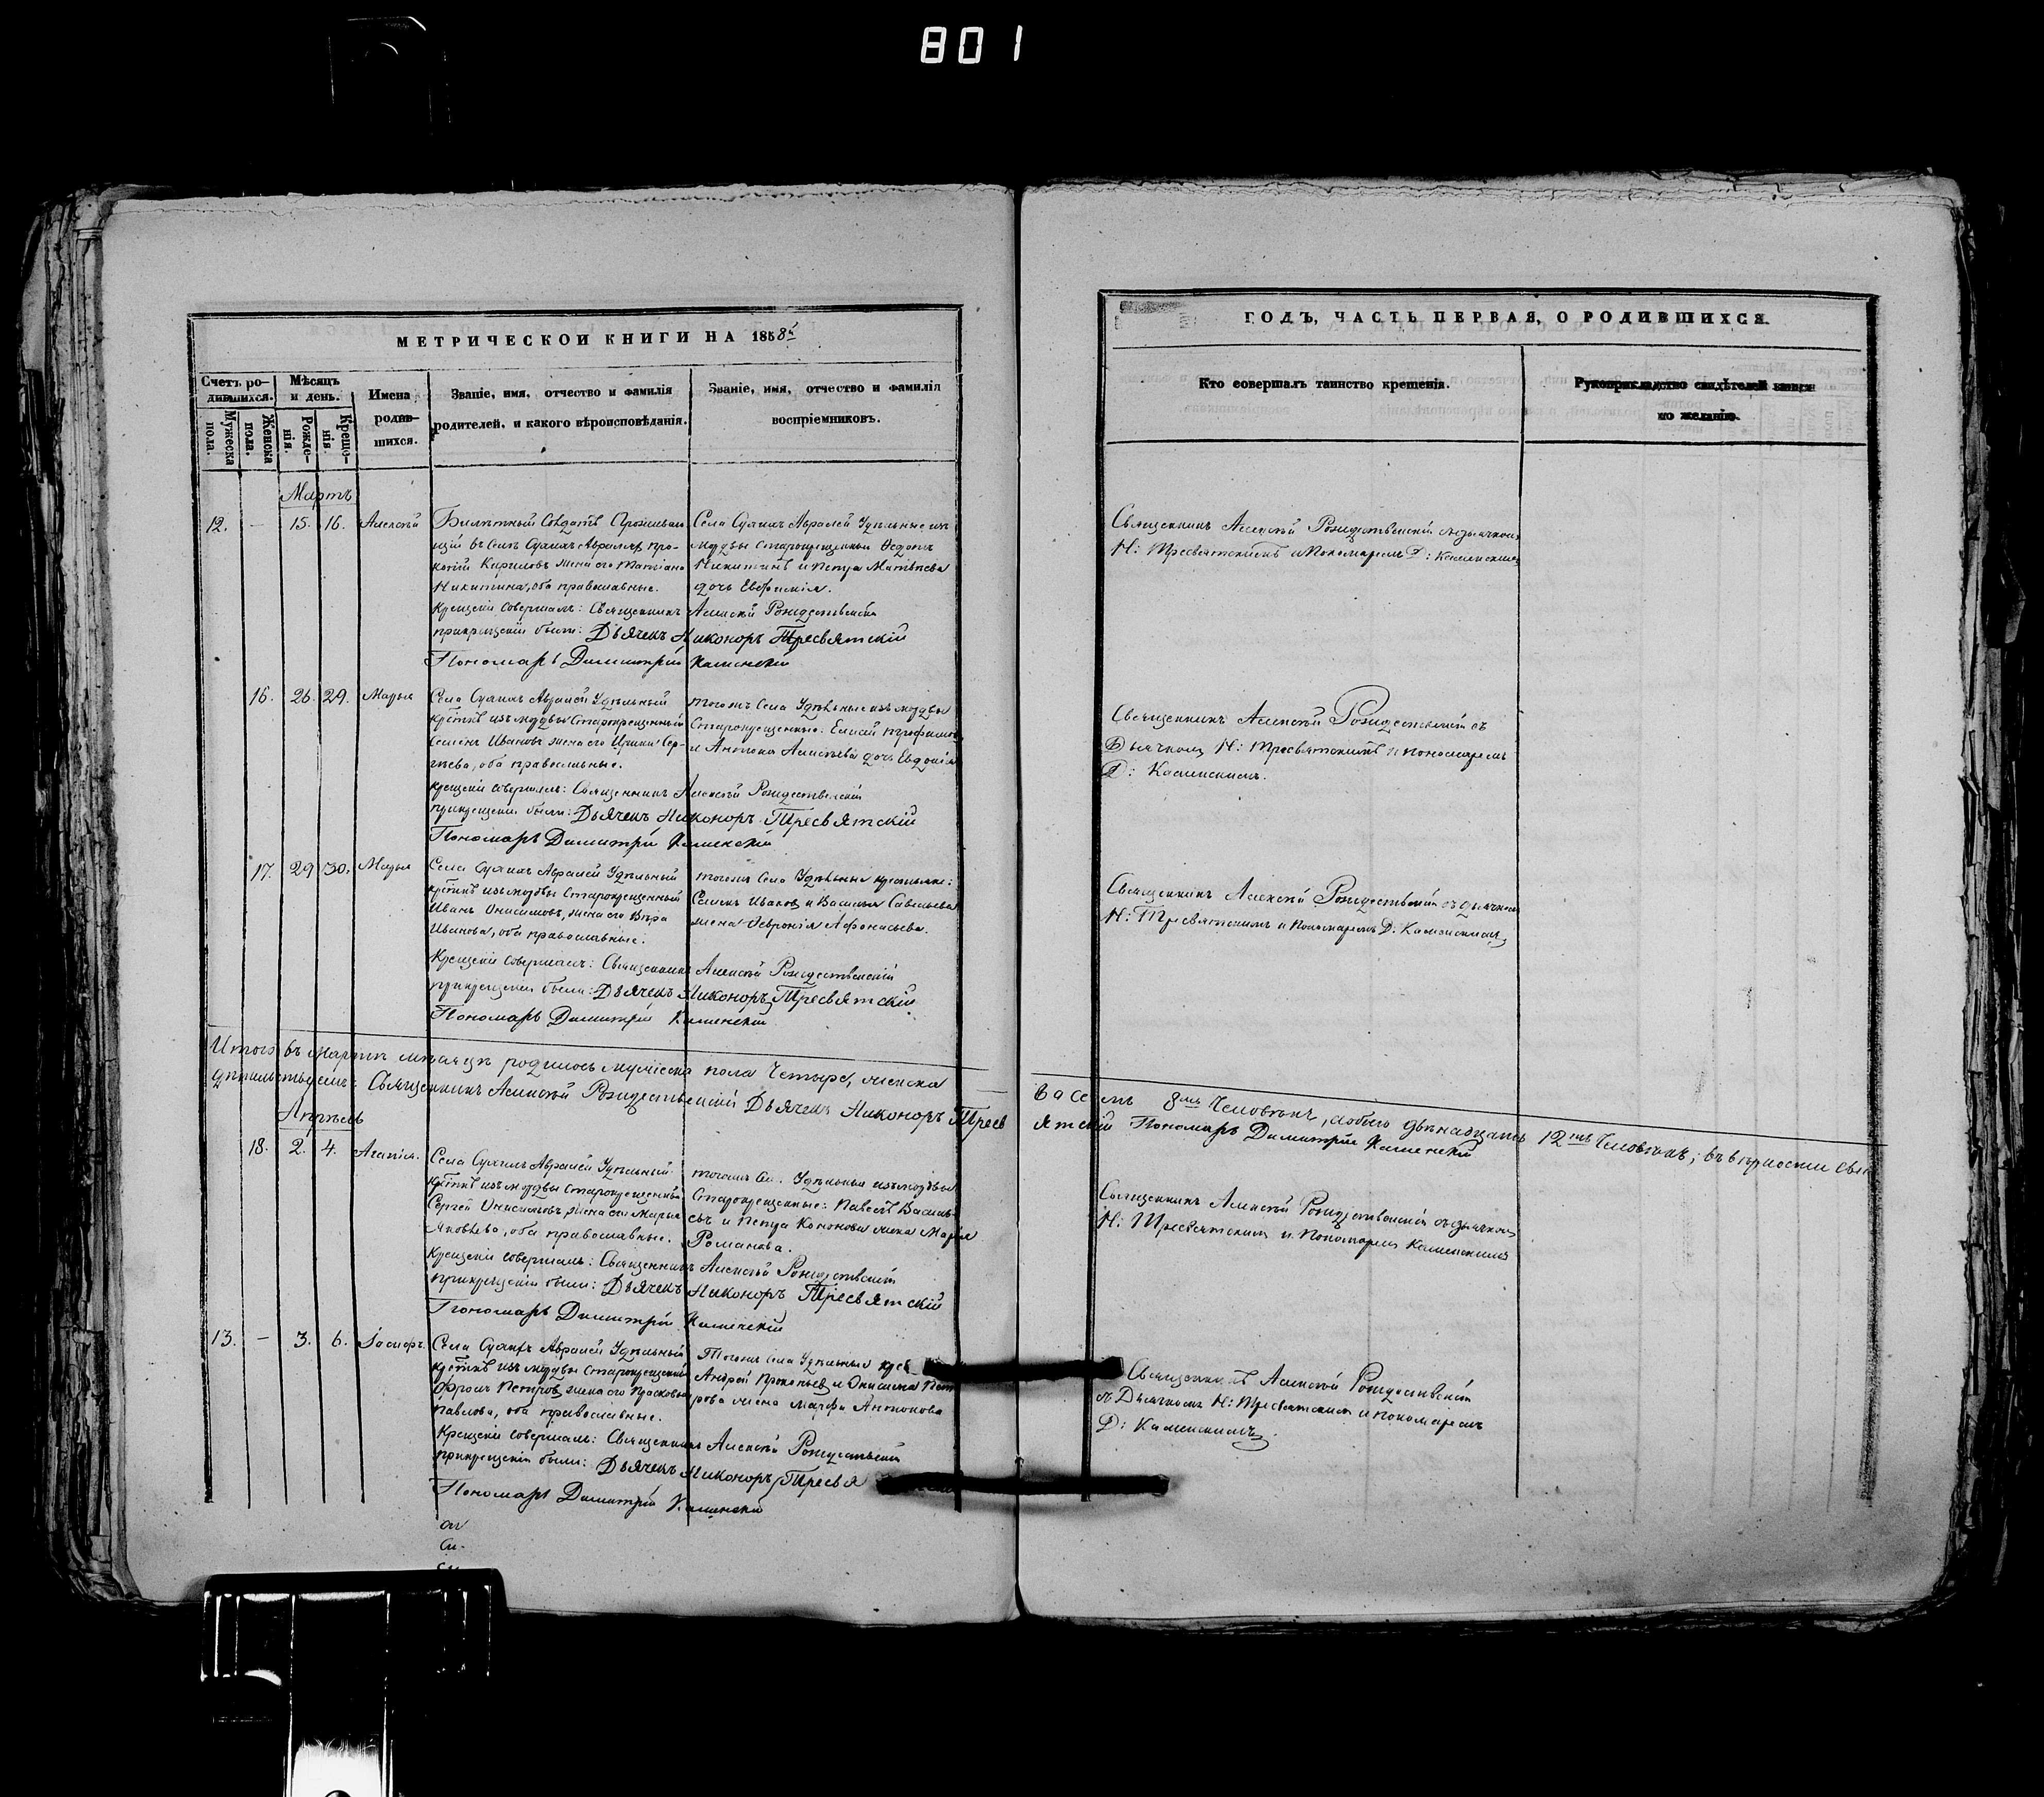 801
МЕТРИЧЕСКОЙ КНИГИ НА 1858й
Счетъ ро-
дившихся.
Мужеска пола.
Женска пола.
Мѣсяцъ
и день.
Рожде-
нія.
Креще-
нія.
Имена
родив-
шихся.
Званіе, имя, отчество и фамилія
родителей, и какого вѣроисповѣданія.
Званіе, имя, отчество и фамилія
воспріемниковъ.
Мартъ
12. — 15. 16. Алексѣй
Билетный Солдатъ Проживаю
щій въ Селѣ Сухихъ Авралей Про-
копій Кириловъ жена его Татіана
Никитина, оба православные.
Села Сухихъ Авралей Удѣльные изъ
мордвы старокрещенные Ѳедотъ
Никитинъ и Петра Матвѣева
дочь Евфимія.
Крещеніе совершалъ: Священникъ Алексѣй Рождественскій
прикрещеніи были: Дьячекъ Никоноръ Тресвятскій
Пономарь Димитрій Каменскій
16. 26. 29. Марья
Села Сухихъ Авралей Удѣльный
крестнъ изъ мордвы Старокрещенный
Семенъ Ивановъ жена его Ирина Сер-
гѣева, оба православные.
тогожъ Села Удѣльные изъ мордвы
Старокрещенные: Елисей Трофимовъ
и Антона Алексѣева дочь Евдокія
Крещеніе совершалъ: Священникъ Алексѣй Рождественскій
прикрещеніи были: Дьячекъ Никоноръ Тресвятскій
Пономарь Димитрій Каменскій
17. 29 30. Марья
Села Сухихъ Авралей Удѣльный
крестнъ изъ мордвы Старокрещенный
Иванъ Онисимовъ, жена его Вѣра
Иванова, оба православные.
тогожъ Села Удѣльные крестьяне:
Семенъ Ивановъ и Василья Савельева
жена Февронія Афонасьева.
Крещеніе совершалъ: Священникъ Алексѣй Рождественскій
прикрещеніи были: Дьячекъ Никоноръ Тресвятскій
Пономарь Димитрій Каменскій
Итого въ мартѣ мѣсяцѣ родилось мужеска пола Четыре, женска
дѣтельствуемъ: Священникъ Алексѣй Рождественскій Дьячекъ Никоноръ Тресв
Апрѣль
18. 2. 4. Агапія.
Села Сухихъ Авралей Удѣльный
крестнъ изъ мордвы старокрещенный
Сергей Онисимовъ, жена его Марья
Яковлева, оба православные.
тогожъ Се. Удѣльные изъ мордвы
Старокрещенные: Павелъ Василь-
евъ и Петра Кононова жена Марія
Романова.
Крещеніе совершалъ: Священникъ Алексѣй Рождественскій
прикрещеніи были: Дьячекъ Никоноръ Тресвятскій
Пономарь Димитрій Каменскій
13. — 3. 6. Іосифъ.
Села Сухихъ Авралей Удѣльный
крестнъ изъ мордвы старокрещенный
Фролъ Петровъ жена его Прасковья
Павлова, оба православные.
Тогожъ Села Удѣльные
Андрей Прокопьевъ и Онисима Пет
рова жена Марфа Антонова
Крещеніе совершалъ: Священникъ Алексѣй Рождественскій
прикрещеніи были: Дьячекъ Никоноръ Тресвя
Пономарь Димитрій Каменскій
ГОДЪ, ЧАСТЬ ПЕРВАЯ, О РОДИВШИХСЯ.
Кто совершалъ таинство крещенія.
Рукоприкладство свидѣтелей записи
по желанію.
Священникъ Алексѣй Рождественскій съ дьячкомъ
Н: Тресвятскимъ и Пономаремъ Д: Каменскимъ
Священникъ Алексѣй Рождественскій съ
Дьячкомъ Н: Тресвятскимъ и пономаремъ
Д: Каменскимъ.
Священникъ Алексѣй Рождественскій съ дьячкомъ
Н: Тресвятскимъ и Пономаремъ Д: Каменскимъ
восемь 8мь Человѣкъ, обоего двѣнадцать 12ть Человѣкъ; въ вѣрности сви
ятскій Пономарь Димитрій Каменскій
Священникъ Алексѣй Рождественскій съ дьячкомъ
Н: Тресвятскимъ и Пономаремъ Каменскимъ
Священникъ Алексѣй Рождественскій
съ Дьячкомъ Н: Тресвятскимъ и пономаремъ
Д: Каменскимъ.